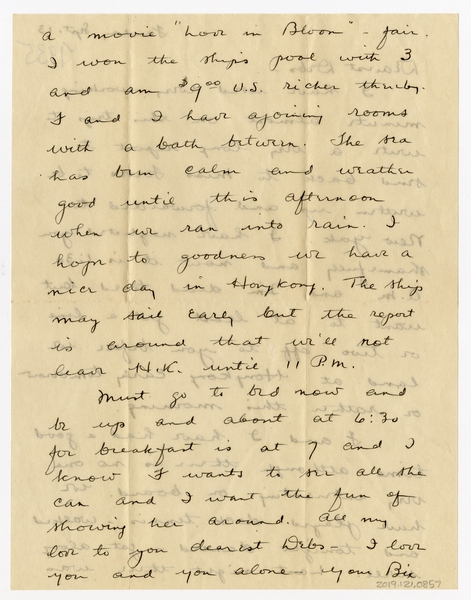 a movie "Love in Bloom" - fair.
I won the ships pool with 3
and am $9.00 U.S. richer thereby.
F and I have ajoining rooms
with a bath between. The sea
has been calm and weather
good until this afternoon
when we ran into rain. I
hope to goodness we have a
nice day in Hongkong. The ship
may sail early but the report
is around that we'll not
leave H.K. until 11 P.M.
Must go to bed now and
be up and about at 6:30
for breakfast is at 7 and I
know F wants to see all she
can and I want the fun of
showing her around. All my
love to you dearest Debs - I love
you and you alone - your Bix
2019.121.0857